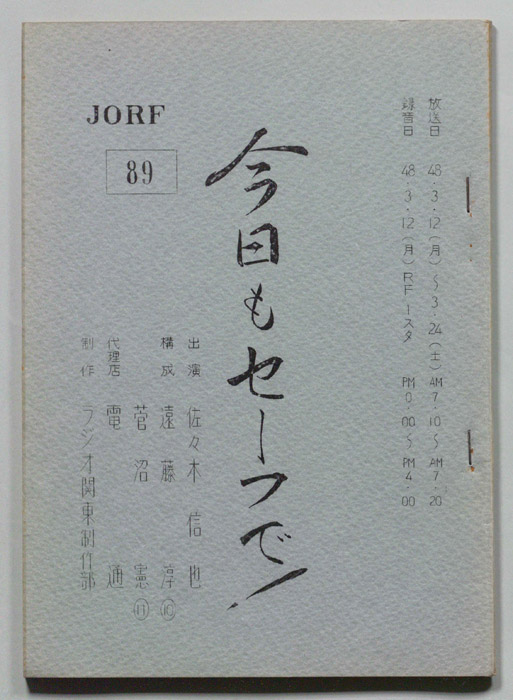 放送日 48・3・12(月)～3・24(土) AM7・10～AM7・20
録音日 48・3・12(月) RF1スタ PM0・00～PM4・00
今日もセーフで!
JORF
89
出演 佐々木信也
構成 遠藤淳⑩
菅沼憲⑪
代理店 電通
制作 ラジオ関東制作部